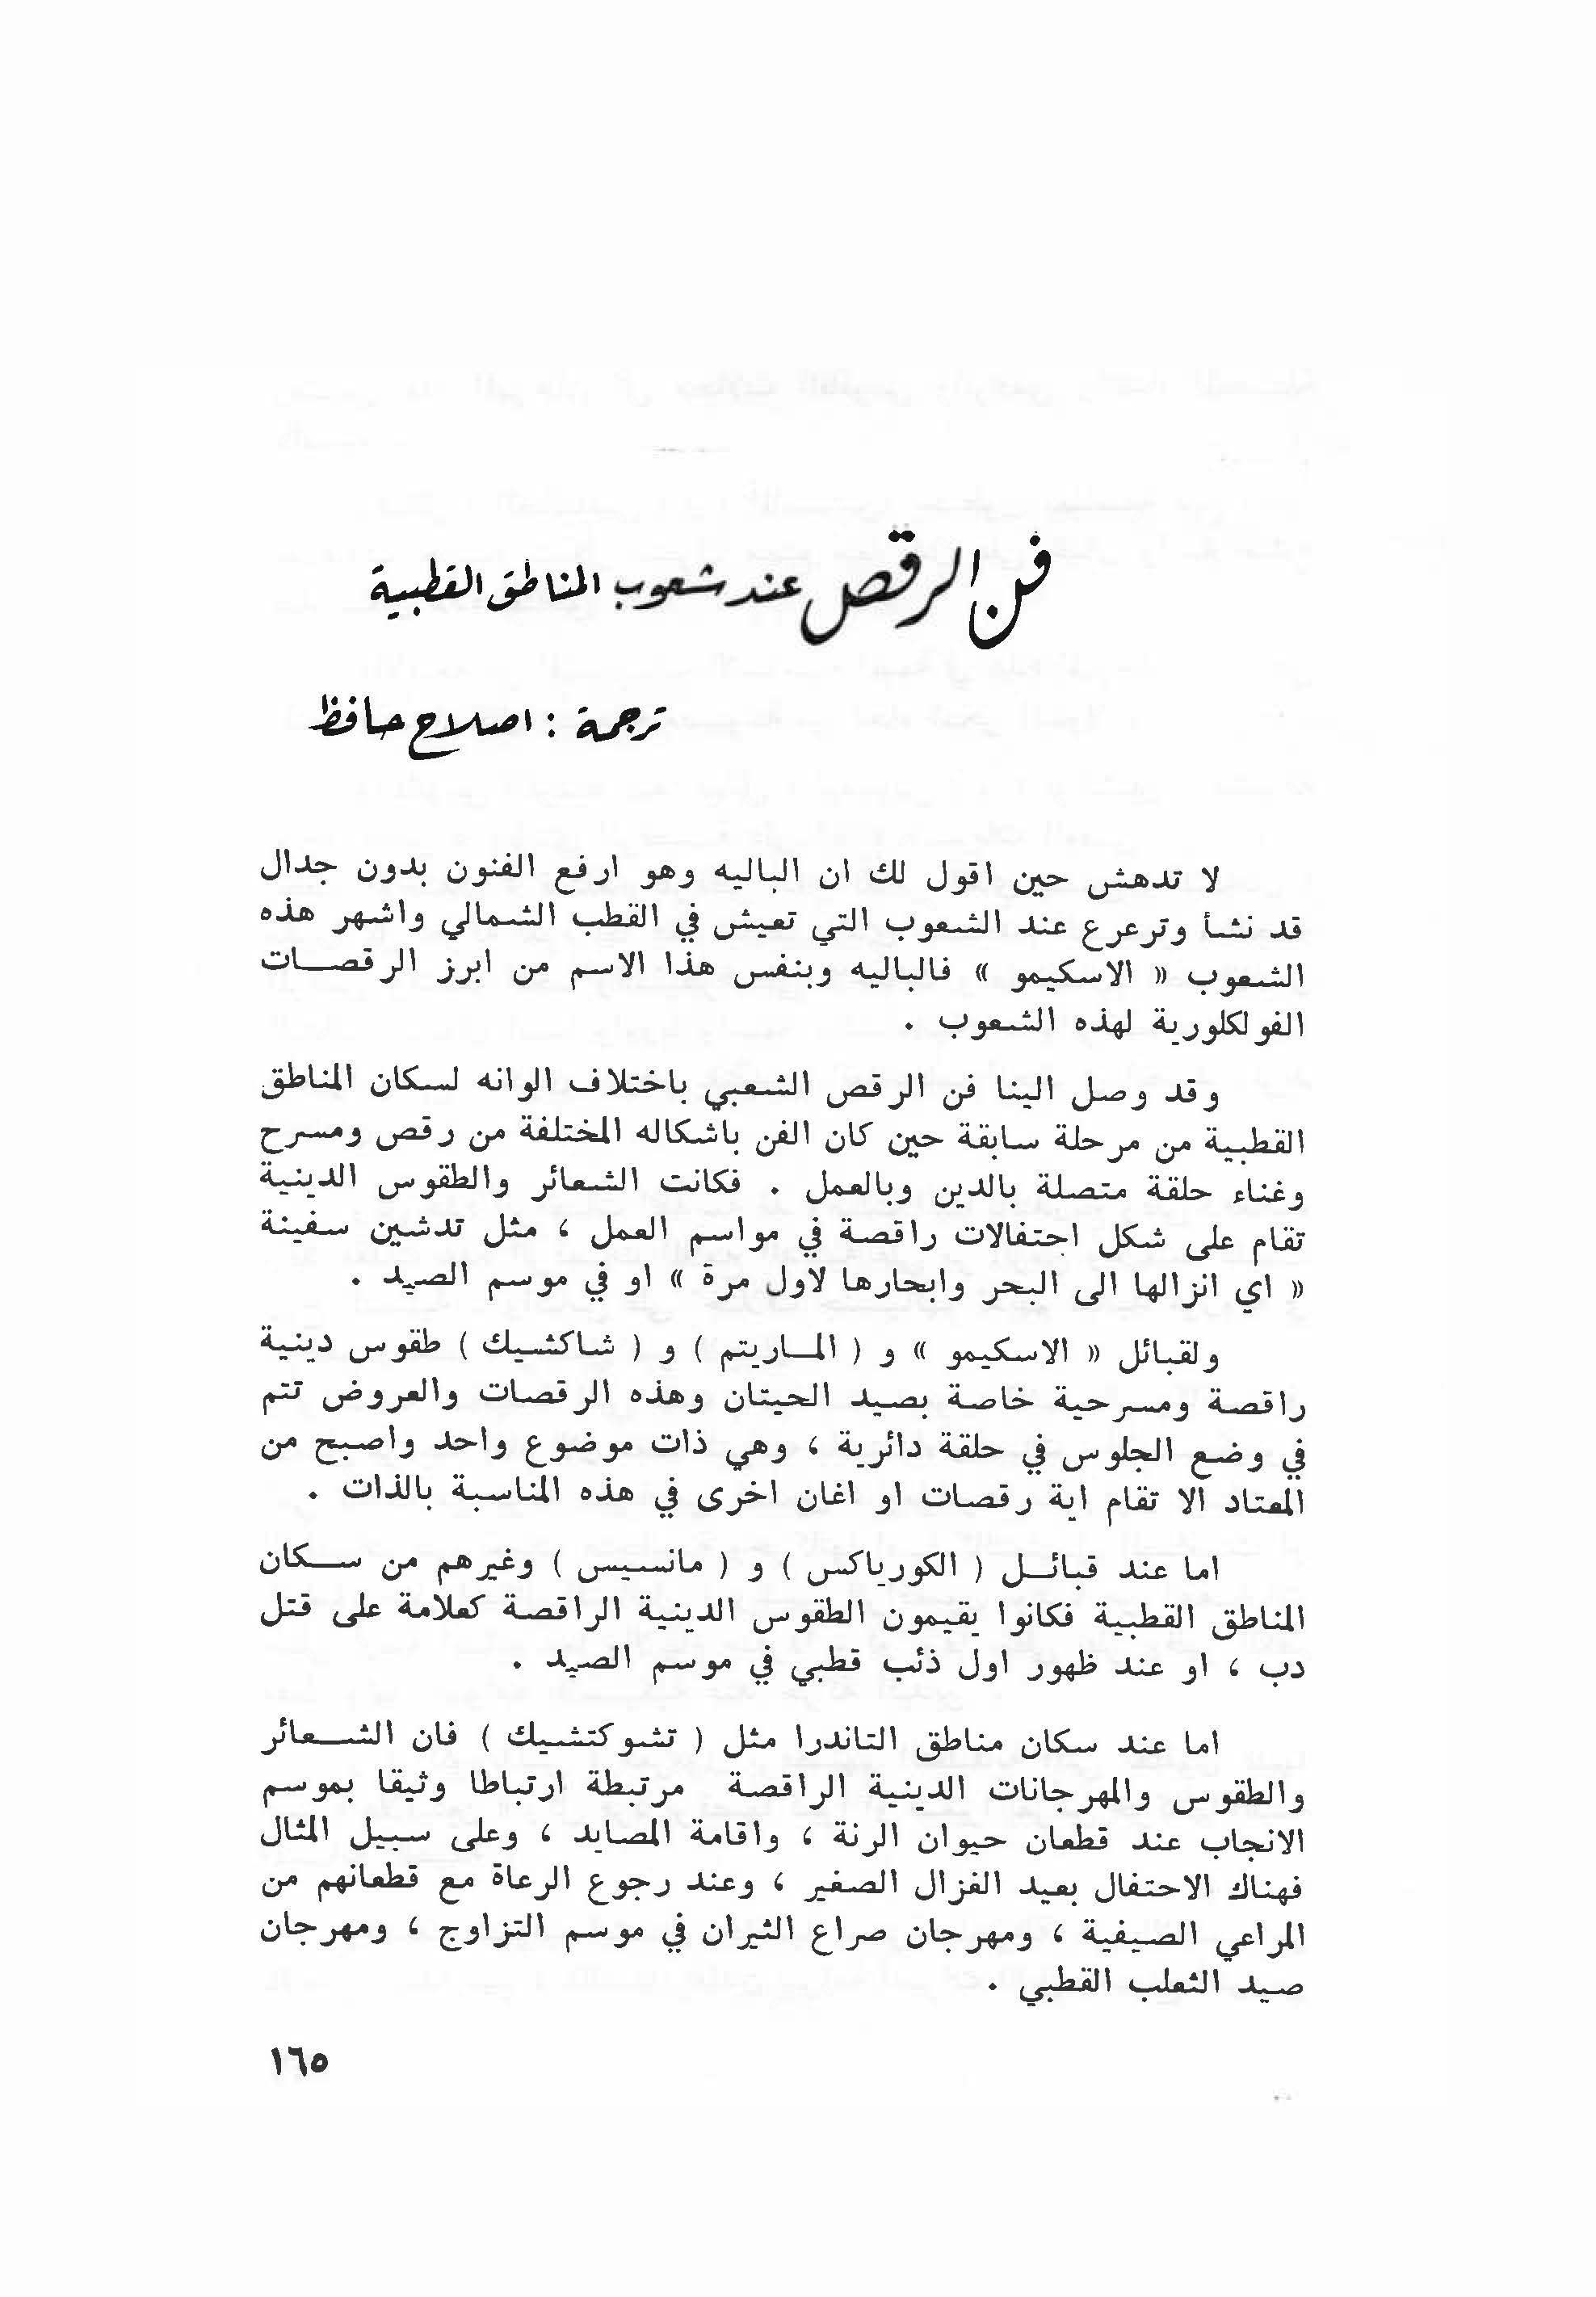 فن الرقص عند شعوب المناطق القطبية
ترجمة : اصلاح حافظ
لا تدهش حين اقول لك ان الباليه وهو ارفع الفنون بدون جدال
قد نشأ وترعرع عند الشعوب التي تعيش في القطب الشمالي واشهر هذه
الشعوب « الاسكيمو » فالباليه وبنفس هذا الاسم من ابرز الرقصات
الفولكلورية لهذه الشعوب .
وقد وصل الينا فن الرقص الشعبي باختلاف الوانه لسكان المناطق
القطبية من مرحلة سابقة حين كان الفن باشكاله المختلفة من رقص ومسرح
وغناء حلقة متصلة بالدين وبالعمل . فكانت الشعائر والطقوس الدينية
تقام على شكل احتفالات راقصة في مواسم العمل ، مثل تدشين سفينة
« اي انزالها الى البحر وابحارها لاول مرة » او في موسم الصيد .
ولقبائل « الاسكيمو » و ( المـاريتم ) و ( شاكشيك ) طقوس دينية
راقصة ومسرحية خاصة بصيد الحيتان وهذه الرقصات والعروض تتم
في وضع الجلوس في حلقة دائرية ، وهي ذات موضوع واحد واصبح من
المعتاد الا تقام اية رقصات او اغان اخرى في هذه المناسبة بالذات .
اما عند قبائـل ( الكورياكس ) و ( مانسيس ) وغيرهم من سـكان
المناطق القطبية فكانوا يقيمون الطقوس الدينية الراقصة كعلامة على قتل
دب ، او عند ظهور اول ذئب قطبي في موسم الصيد .
اما عند سكان مناطق التاندرا مثل ( تشوكتشيك ) فان الشـعائر
والطقوس والمهرجانات الدينية الراقصة مرتبطة ارتباطا وثيقا بموسم
الانجاب عند قطعان حيوان الرنة ، واقامة المصايد ، وعلى سبيل المثال
فهناك الاحتفال بعيد الغزال الصغير ، وعند رجوع الرعاة مع قطعانهم من
المراعي الصيفية ، ومهرجان صراع الثيران في موسم التزاوج ، ومهرجان
صيد الثعلب القطبي .
١٦٥